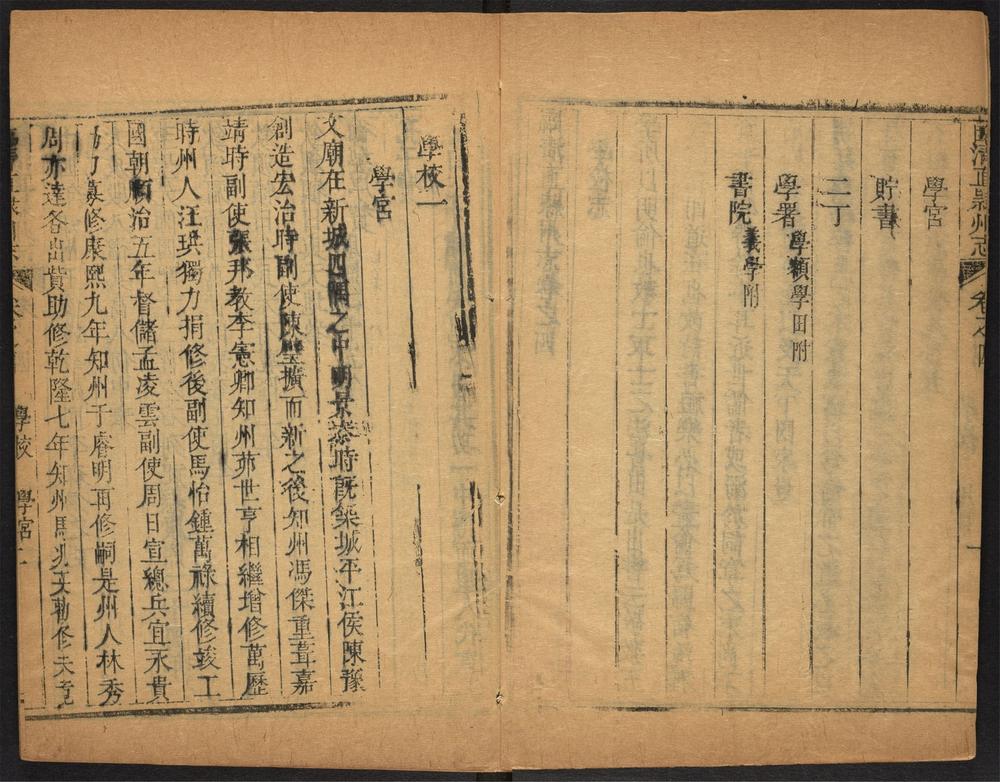 臨清直隸州志 卷之四 一
學宮
貯書
二丁
學署 學額學田附
書院 義學附
學校一
學宮
文廟在新城四隅之中明景泰時旣築城平江侯陳豫
創造宏治時副使陳璧擴而新之後知州馮傑重葺嘉
靖時副使張邦教李憲卿知州茆世亨相繼增修萬歷
時州人汪珙獨力捐修後副使馬怡鍾萬祿續修竣工
國朝順治五年督儲孟凌雲副使周日宣總兵宜永貴
力募修康熙九年知州于睿明再修嗣是州人林秀
周亦達各出貲助修乾隆七年知州馬兆天勸修夫竟
學校 學宮 一